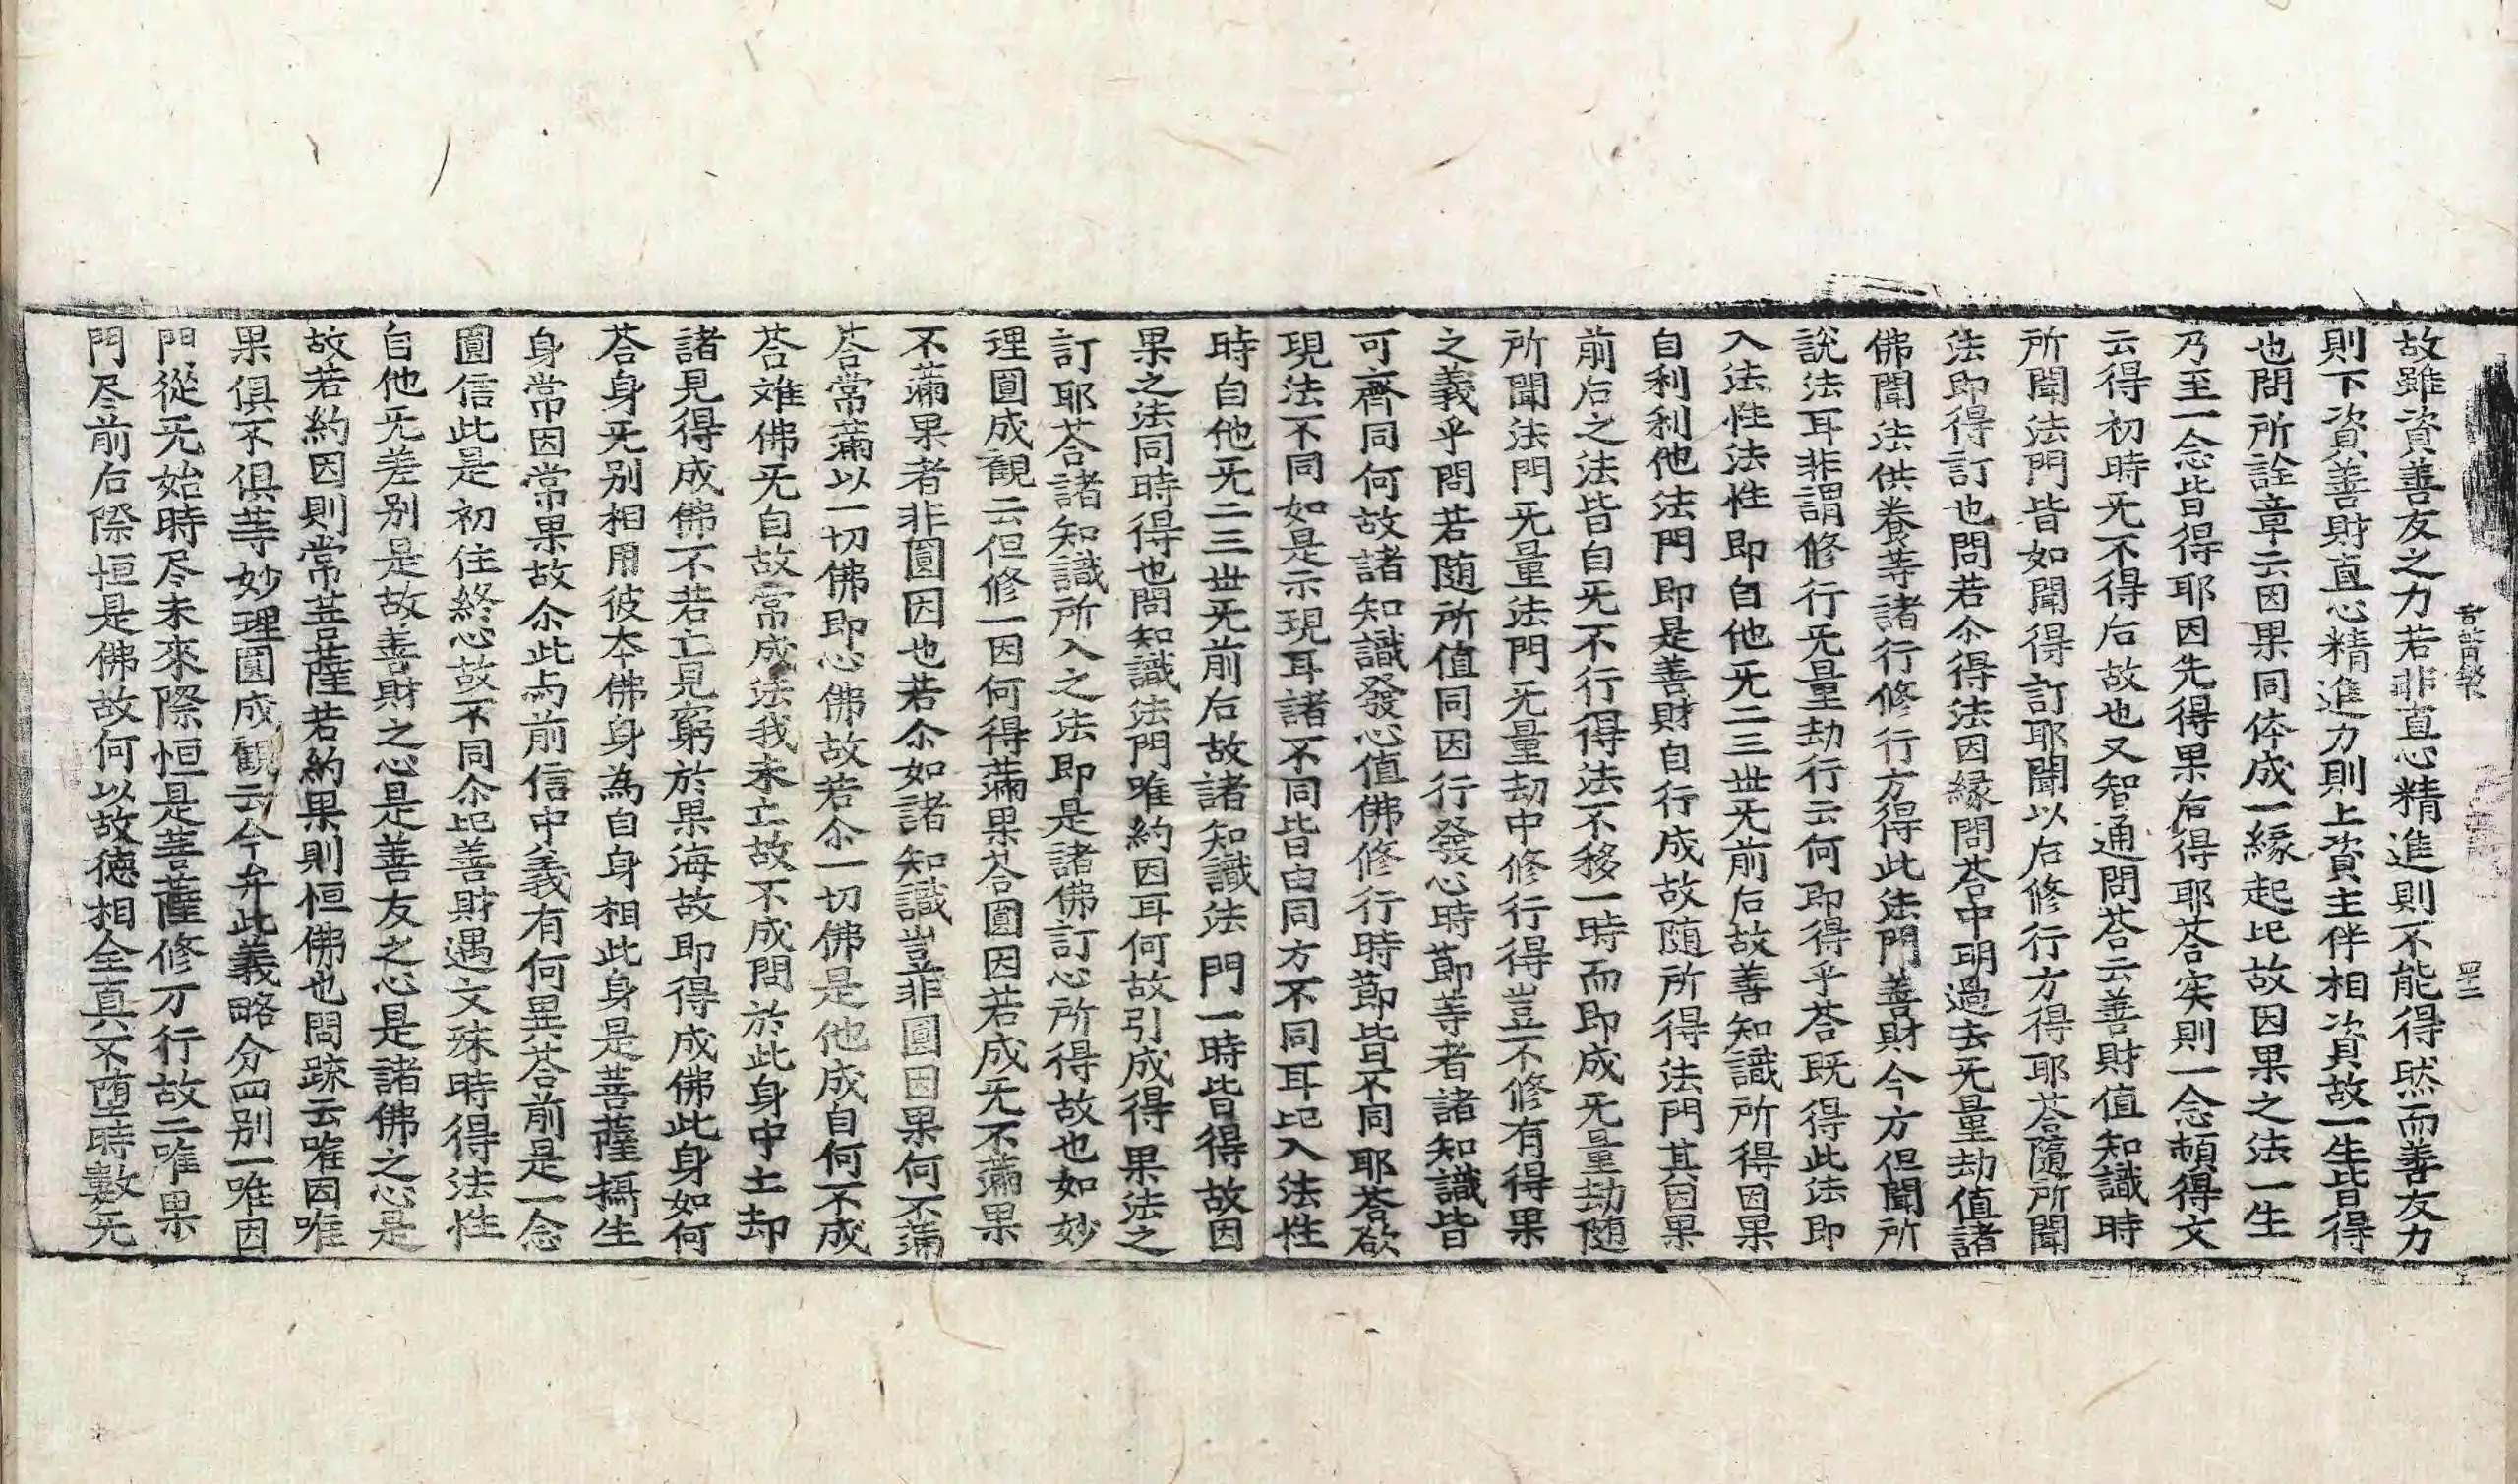 故雖資善友之力若非直心精進則不能得然而善友力
則下資善財直心精進力則上資主伴相資故一生皆得
也問所詮章云因果同体成一緣起此故因果之法一生
乃至一念皆得耶因先得果后得耶荅実則一念頓得文
云得初時旡不得后故也又智通問荅云善財值知識時
所聞法門皆如聞得訂耶聞以后修行方得耶荅隨所聞
法即得訂也問若尒得法因緣問荅中明過去旡量劫值諸
佛聞法供養等諸行修行方得此法門善財今方但聞所
說法耳非謂修行旡量劫行云何即得乎荅旣得此法即
入法性法性即自他旡二三世旡前后故善知識所得因果
自利利他法門即是善財自行成故隨所得法門其因果
前后之法皆自旡不行得法不移一時而即成旡量劫随
所聞法門旡量法門旡量劫中修行得豈不修有得果
之義乎問若随所值同因行發心時節等者諸知識皆
可齊同何故諸知識發心值佛修行時節皆不同耶荅欲
現法不同如是示現耳諸不同皆由同方不同耳此入法性
時自他旡二三世旡前后故諸知識法門一時皆得故因
果之法同時得也問知識法門唯約因耳何故引成得果法之
訂耶荅諸知識所入之法即是諸佛訂心所得故也如妙
理圓成觀云但修一因何得滿果荅圓因若成旡不滿果
不滿果者非圓因也若尒如諸知識豈非圓因果何不滿
荅常滿以一切佛即心佛故若尒一切佛是他成自何不成
荅难佛旡自故常成法我未亡故不成問於此身中土却
諸見得成佛不若亡見窮於果海故即得成佛此身如何
荅身旡别相用彼本佛身為自身相此身是菩薩攝生
身常因常果故尒此与前信中義有何異荅前是一念
圓信此是初住終心故不同尒此善財遇文殊時得法性
自他旡差别是故善財之心是善友之心是諸佛之心是
故若約因則常菩薩若約果則恒佛也問疏云唯因唯
果俱不俱等妙理圓成觀云今弁此義略分四别一唯因
門從旡始時尽未來際恒是菩薩修万行故二唯果
門尽前后際恒是佛故何以故德相全真不堕時數旡